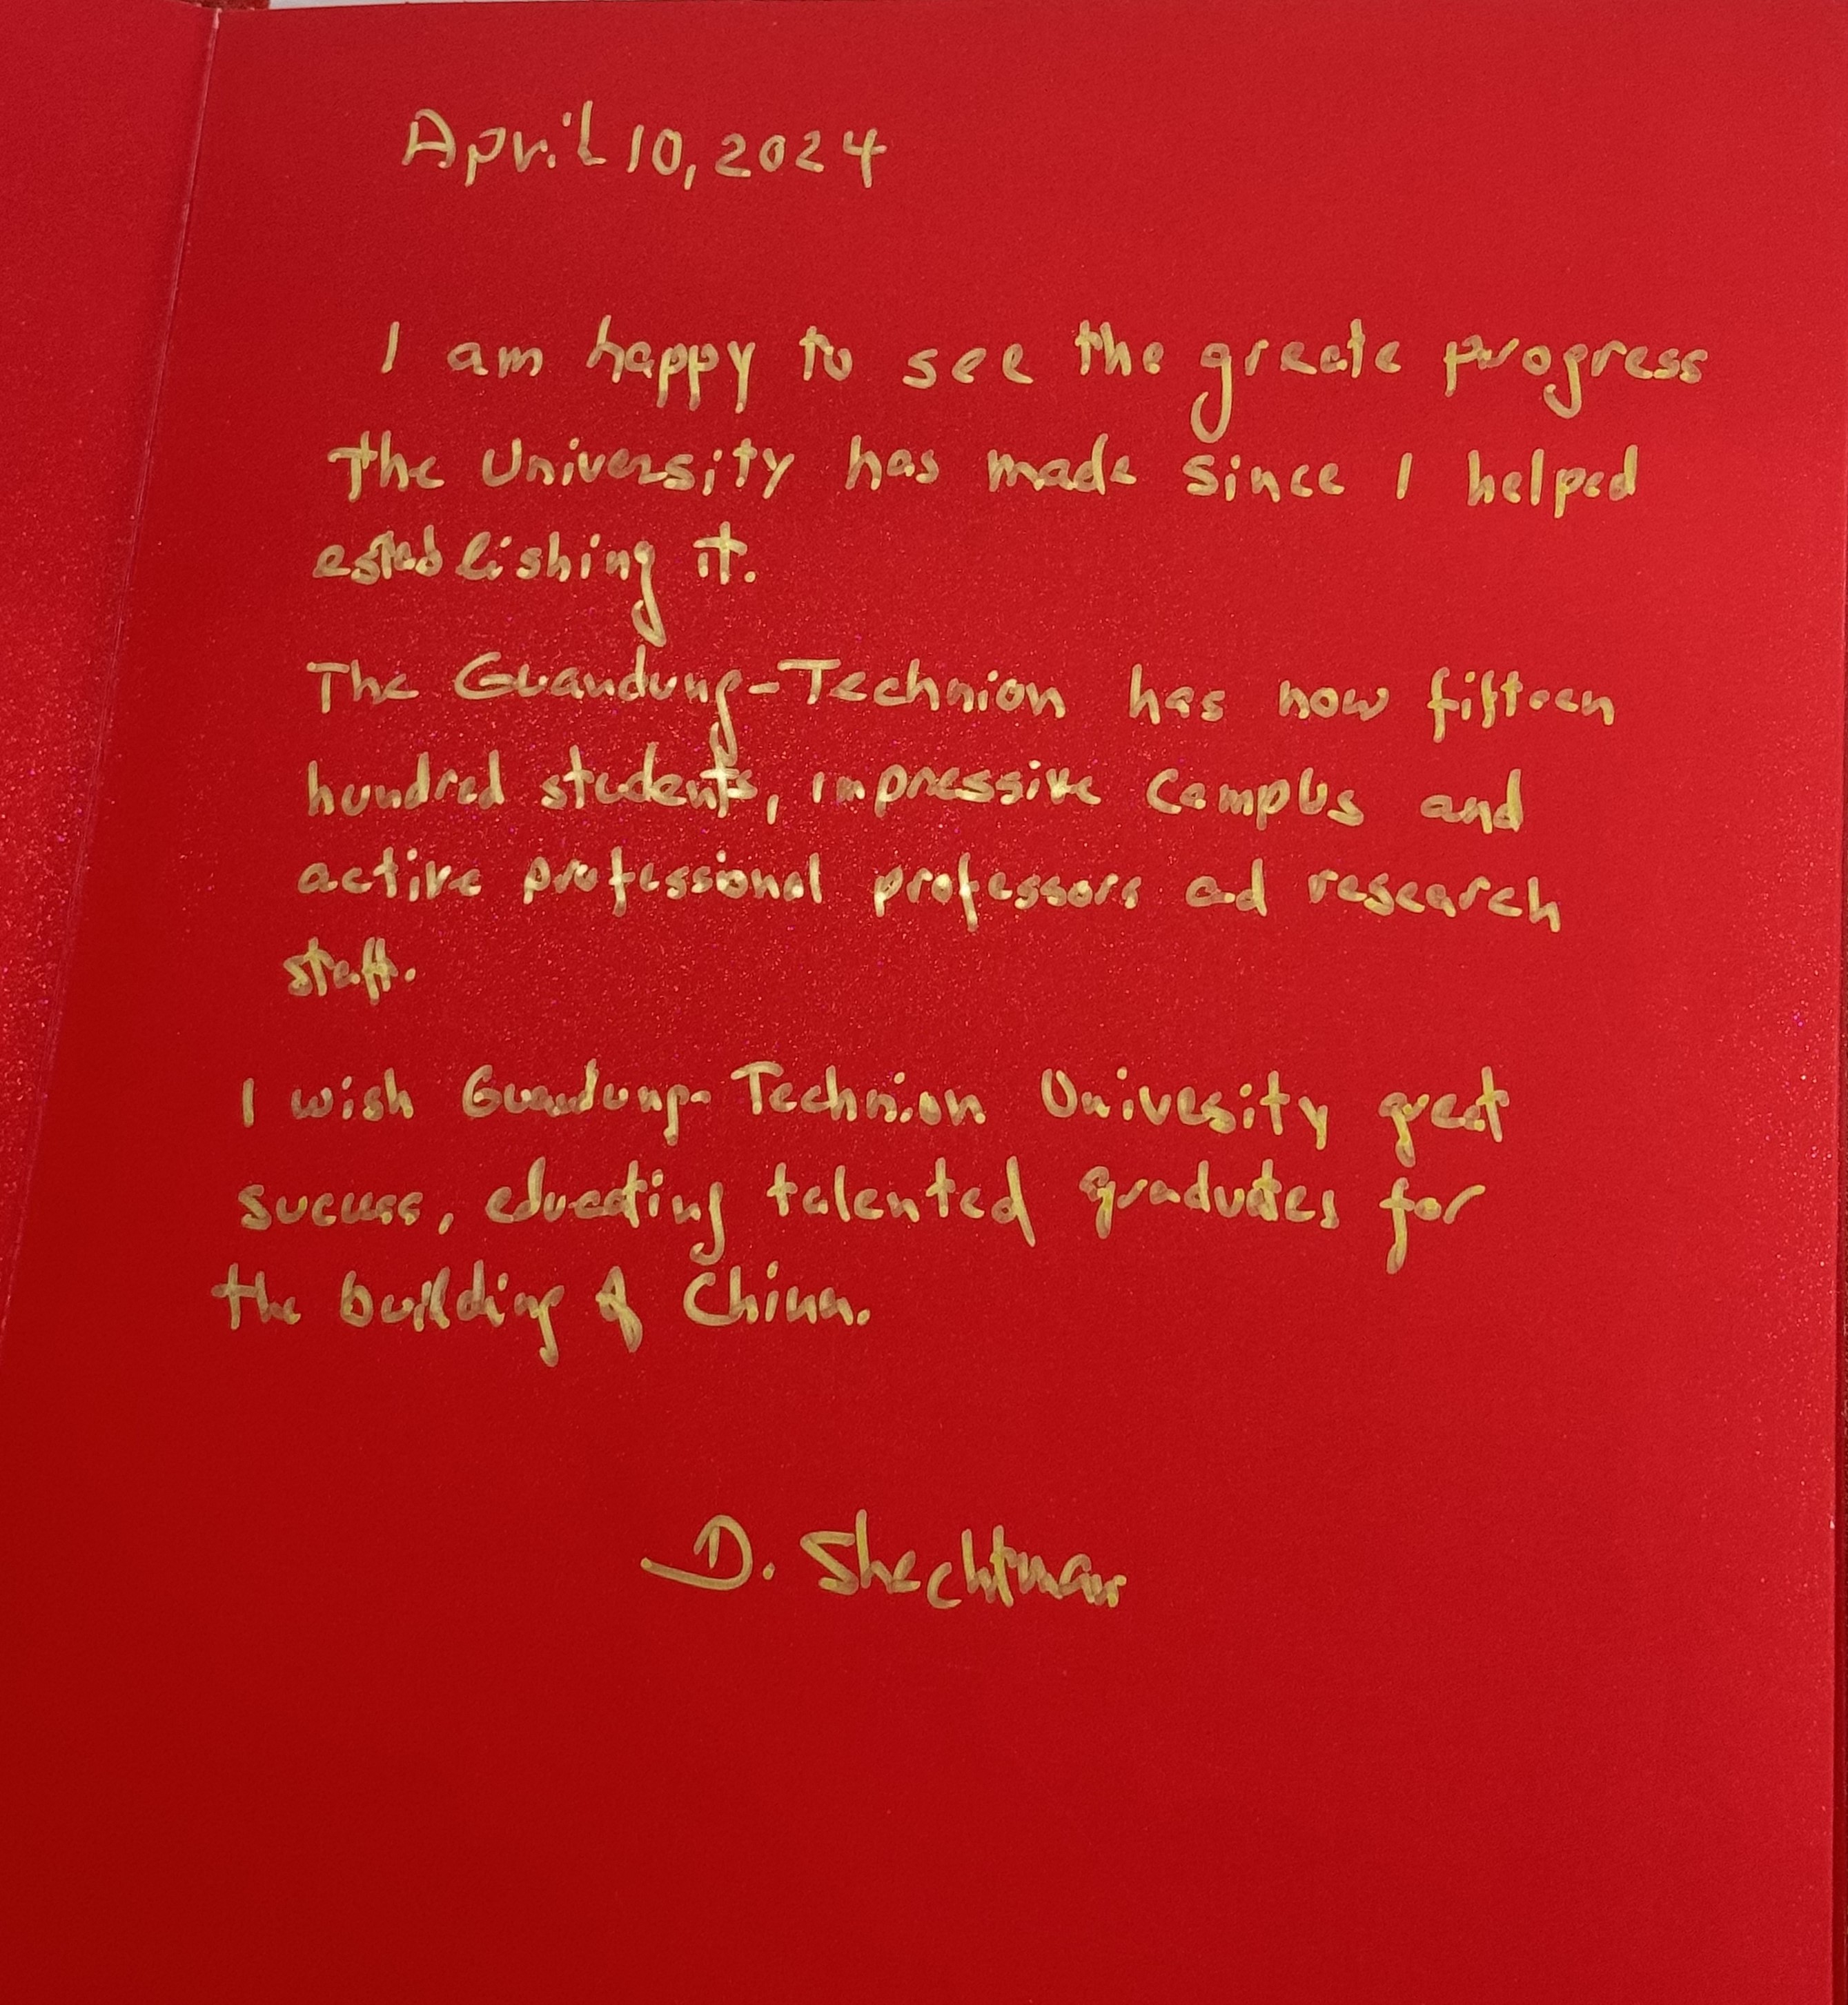 April 10, 2024
I am happy to see the greate progress
the University has made since I helped
establishing it.
The Guandung-Technion has now fifteen
hundred students, impressive campus and
active professional professors ad research
staff.
I wish Guandung-Technion Univesity great
sucuss, educating talented graduates for
the building of China.
D. Shechtman